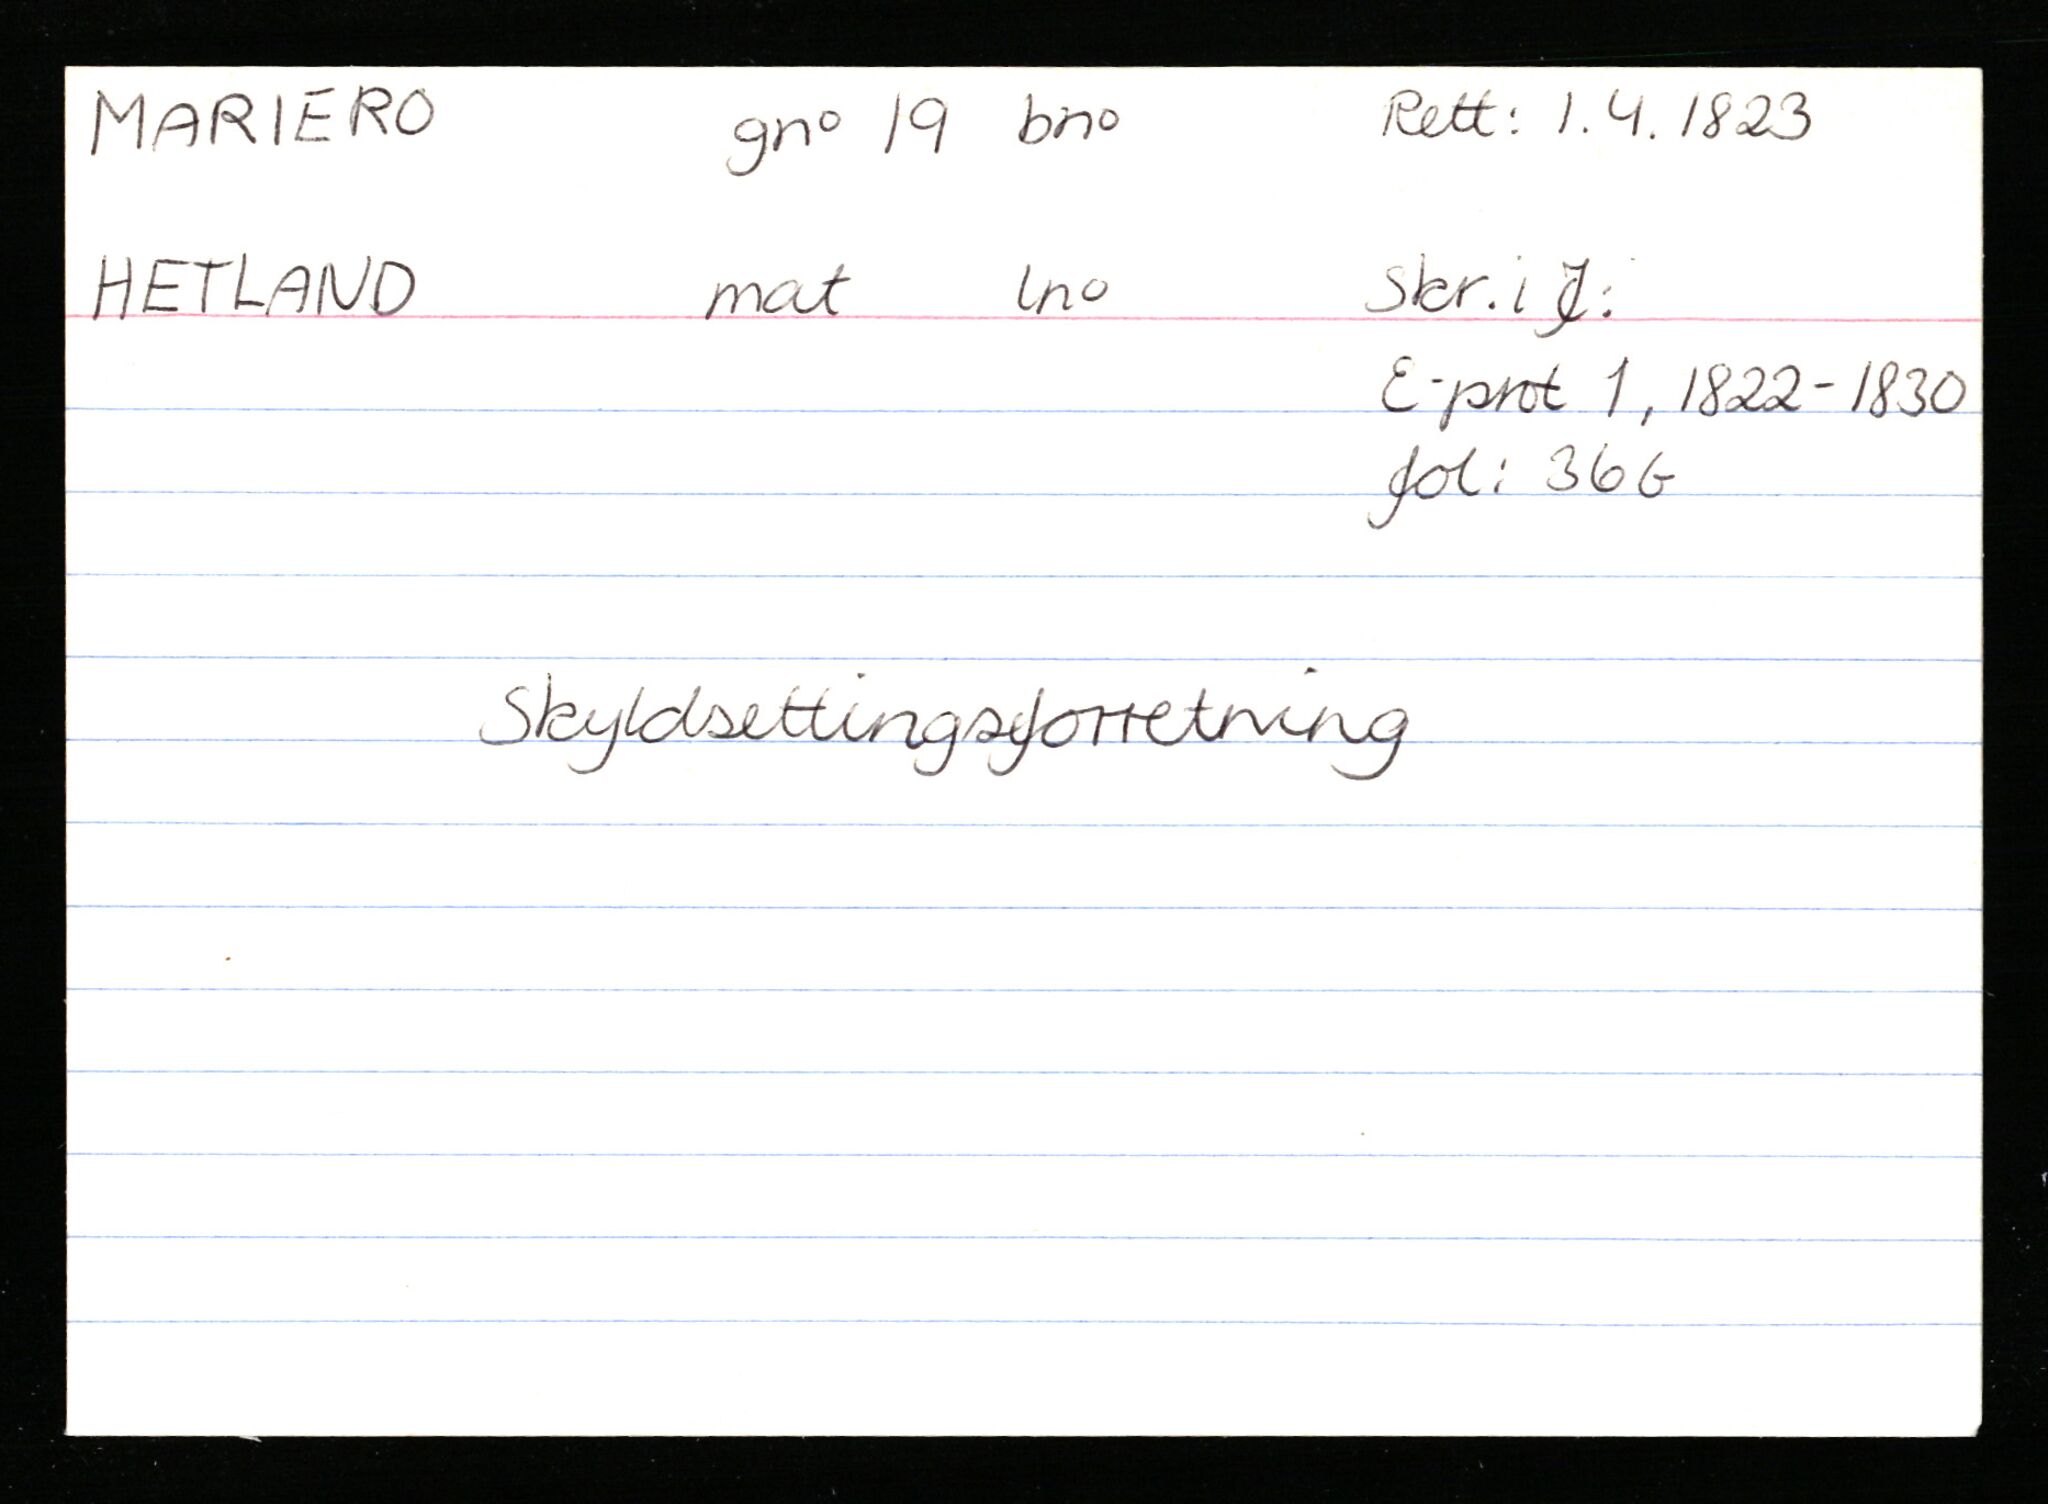 MARIERO gno 19 bno Rett: 1.4.1823
HETLAND mat lno Skr. i J:
E-prot 1, 1822-1830
fol: 36b
Skyldsettingsforretning